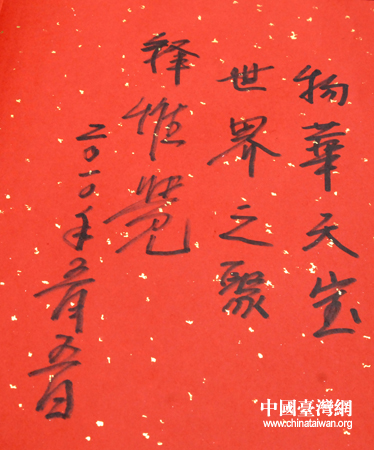 物華天宝
世界之聚
释惟覺
二〇一〇年五月五日
中國臺灣網
www.chinataiwan.org